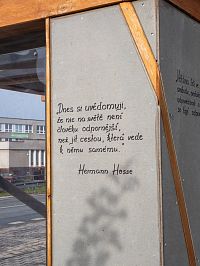 „Dnes si uvědomuji,
že nic na světě není
člověku odpornější,
než jít cestou, která vede
k němu samému."
Hermann Hesse